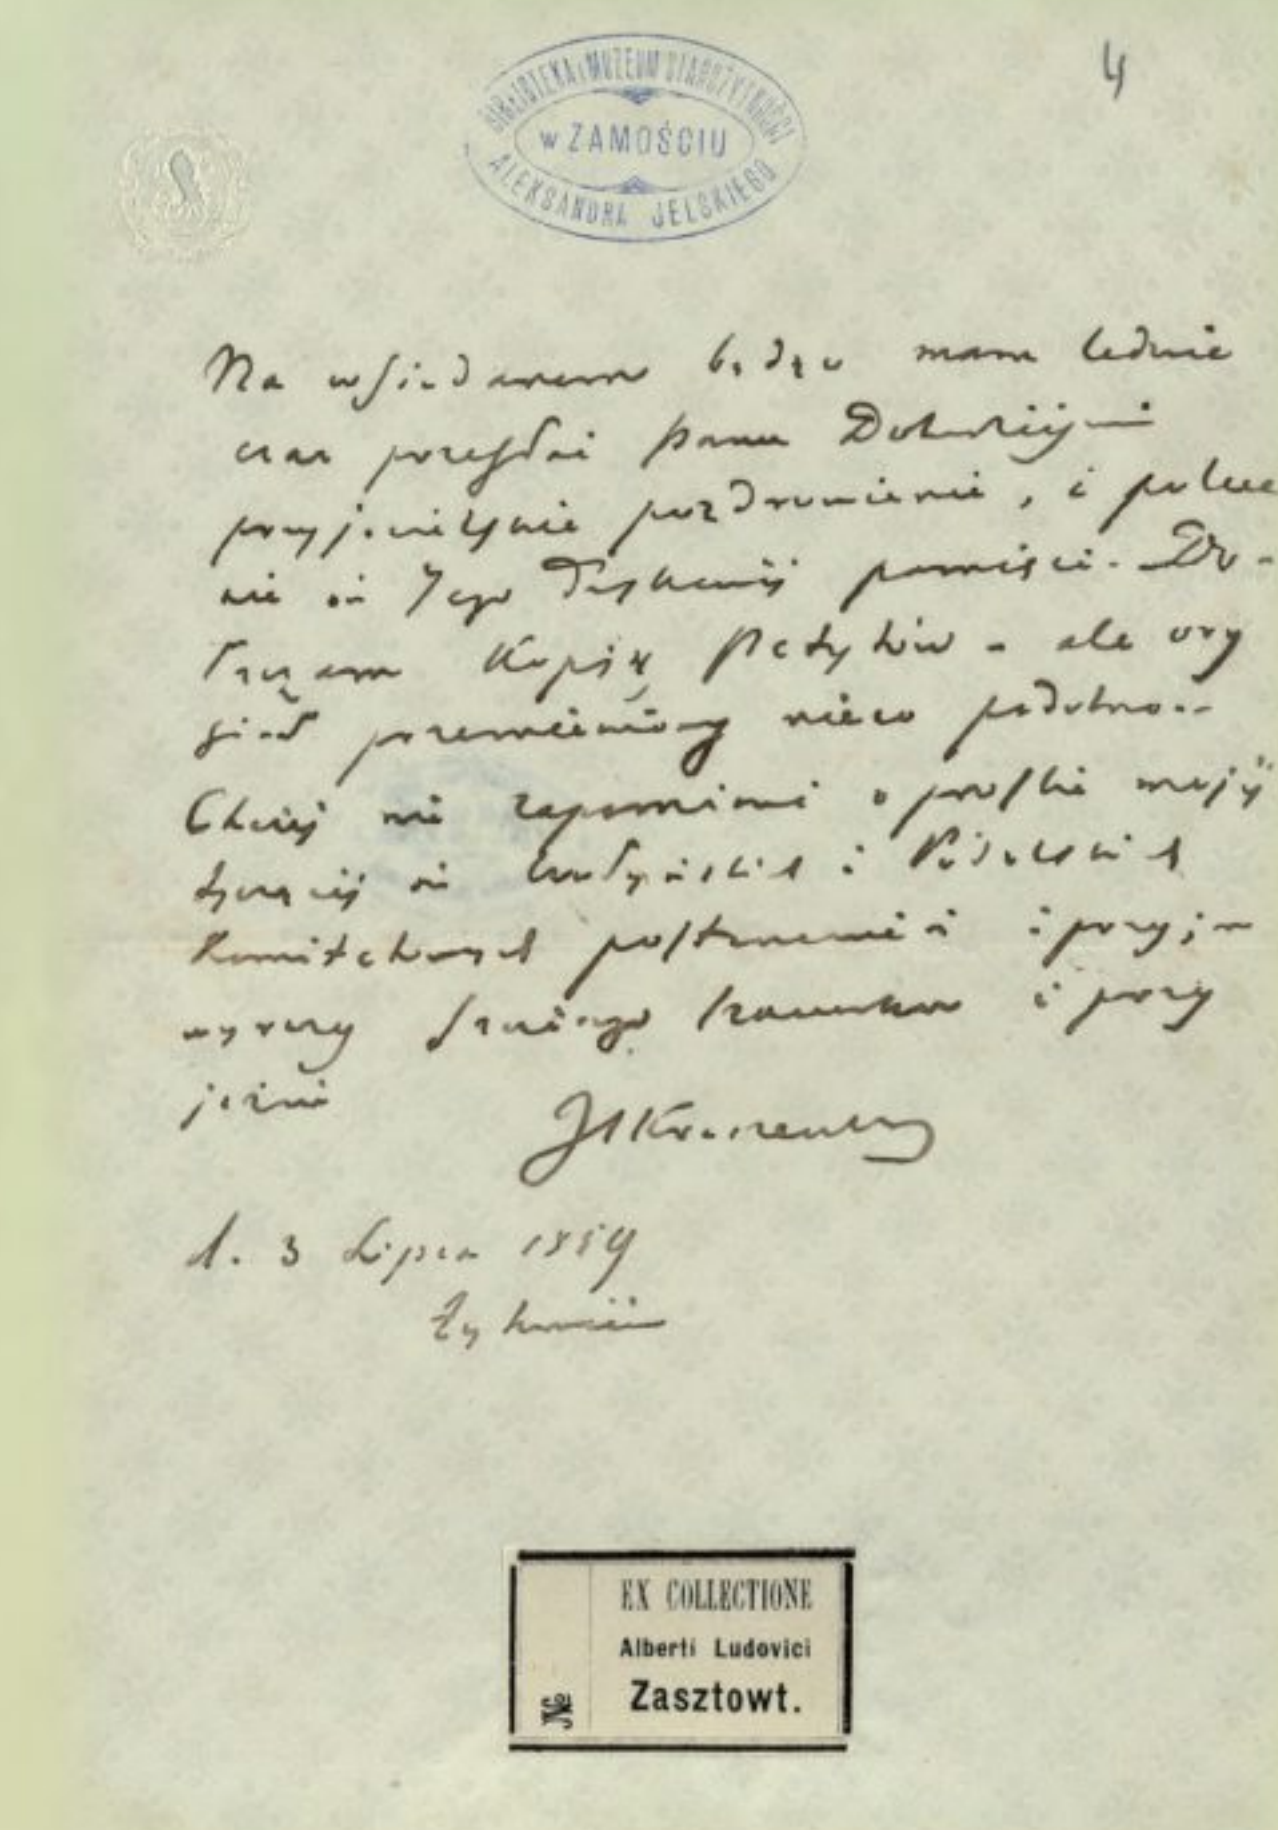 4
BIBLIOTEKA i MUZEUM STAROŻYTNOŚCI
w ZAMOŚCIU
ALEKSANDRA JELSKIEGO
Na wsiadanem będąc mam ledwie
czas przesłać Panu Dobrodziejowi
przyjacielskie pozdrowienie, i polece
nie się Jego łaskawej pamięci. Do-
łączam Kopiję Petytów - ale ory
ginał przemieniony nieco podobno.
Chciej nie zapominać o prośbie mojej
tyczącej się Wołyńskich i Podolskich
Komitetowych postanowień i przyjm
wyrazy szacunku i przy
jaźni
JIKraszewski
d. 3 Lipca 1859
Żytomierz
EX COLLECTIONE
Alberti Ludovici
№ Zasztowt.